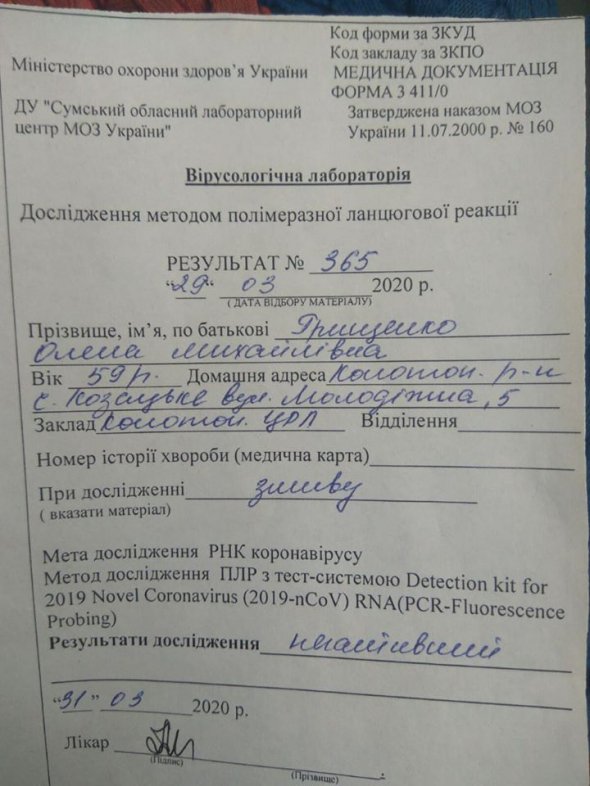 Код форми за ЗКУД
Код закладу за ЗКПО
Міністерство охорони здоров'я України МЕДИЧНА ДОКУМЕНТАЦІЯ
ФОРМА З 411/0
ДУ "Сумський обласний лабораторний Затверджена наказом МОЗ
центр МОЗ України" України 11.07.2000 р. № 160
Вірусологічна лабораторія
Дослідження методом полімеразної ланцюгової реакції
РЕЗУЛЬТАТ № 365
"29" 03 2020 р.
( ДАТА ВІДБОРУ МАТЕРІАЛУ)
Прізвище, ім'я, по батькові Грищенко
Олена Михайлівна
Вік 59 р. Домашня адреса Конотоп. р-н
с. Козацьке вул. Молодіжна, 5
Заклад Конотоп. ЦРЛ Відділення
Номер історії хвороби (медична карта)
При дослідженні змиву
( вказати матеріал)
Мета дослідження РНК коронавірусу
Метод дослідження ПЛР з тест-системою Detection kit for
2019 Novel Coronavirus (2019-nCoV) RNA(PCR-Fluorescence
Probing)
Результати дослідження негативний
"31" 03 2020 р.
Лікар
(Підпис)
(Прізвище)